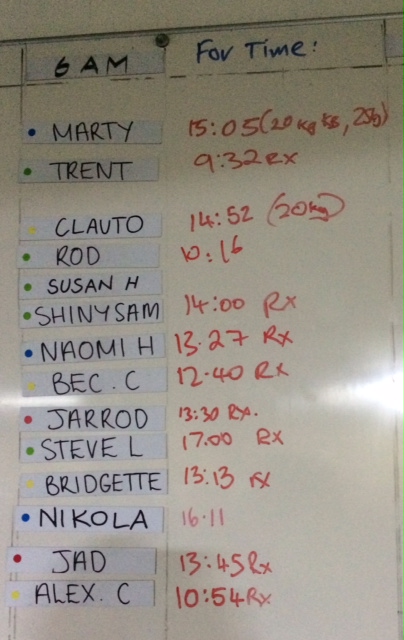 6AM For Time:
MARTY 15:05 (20kg KB, 25kg)
TRENT 9:32 RX
CLAUTO 14:52 (20kg)
ROD 10:16
SUSAN H
SHINY SAM 14:00 Rx
NAOMI H 13.27 Rx
BEC. C 12.40 Rx
JARROD 13:30 Rx.
STEVE L 17:00 Rx
BRIDGETTE 13:13 rx
NIKOLA 16.11
JAD 13:45 Rx
ALEX. C 10:54 Rx